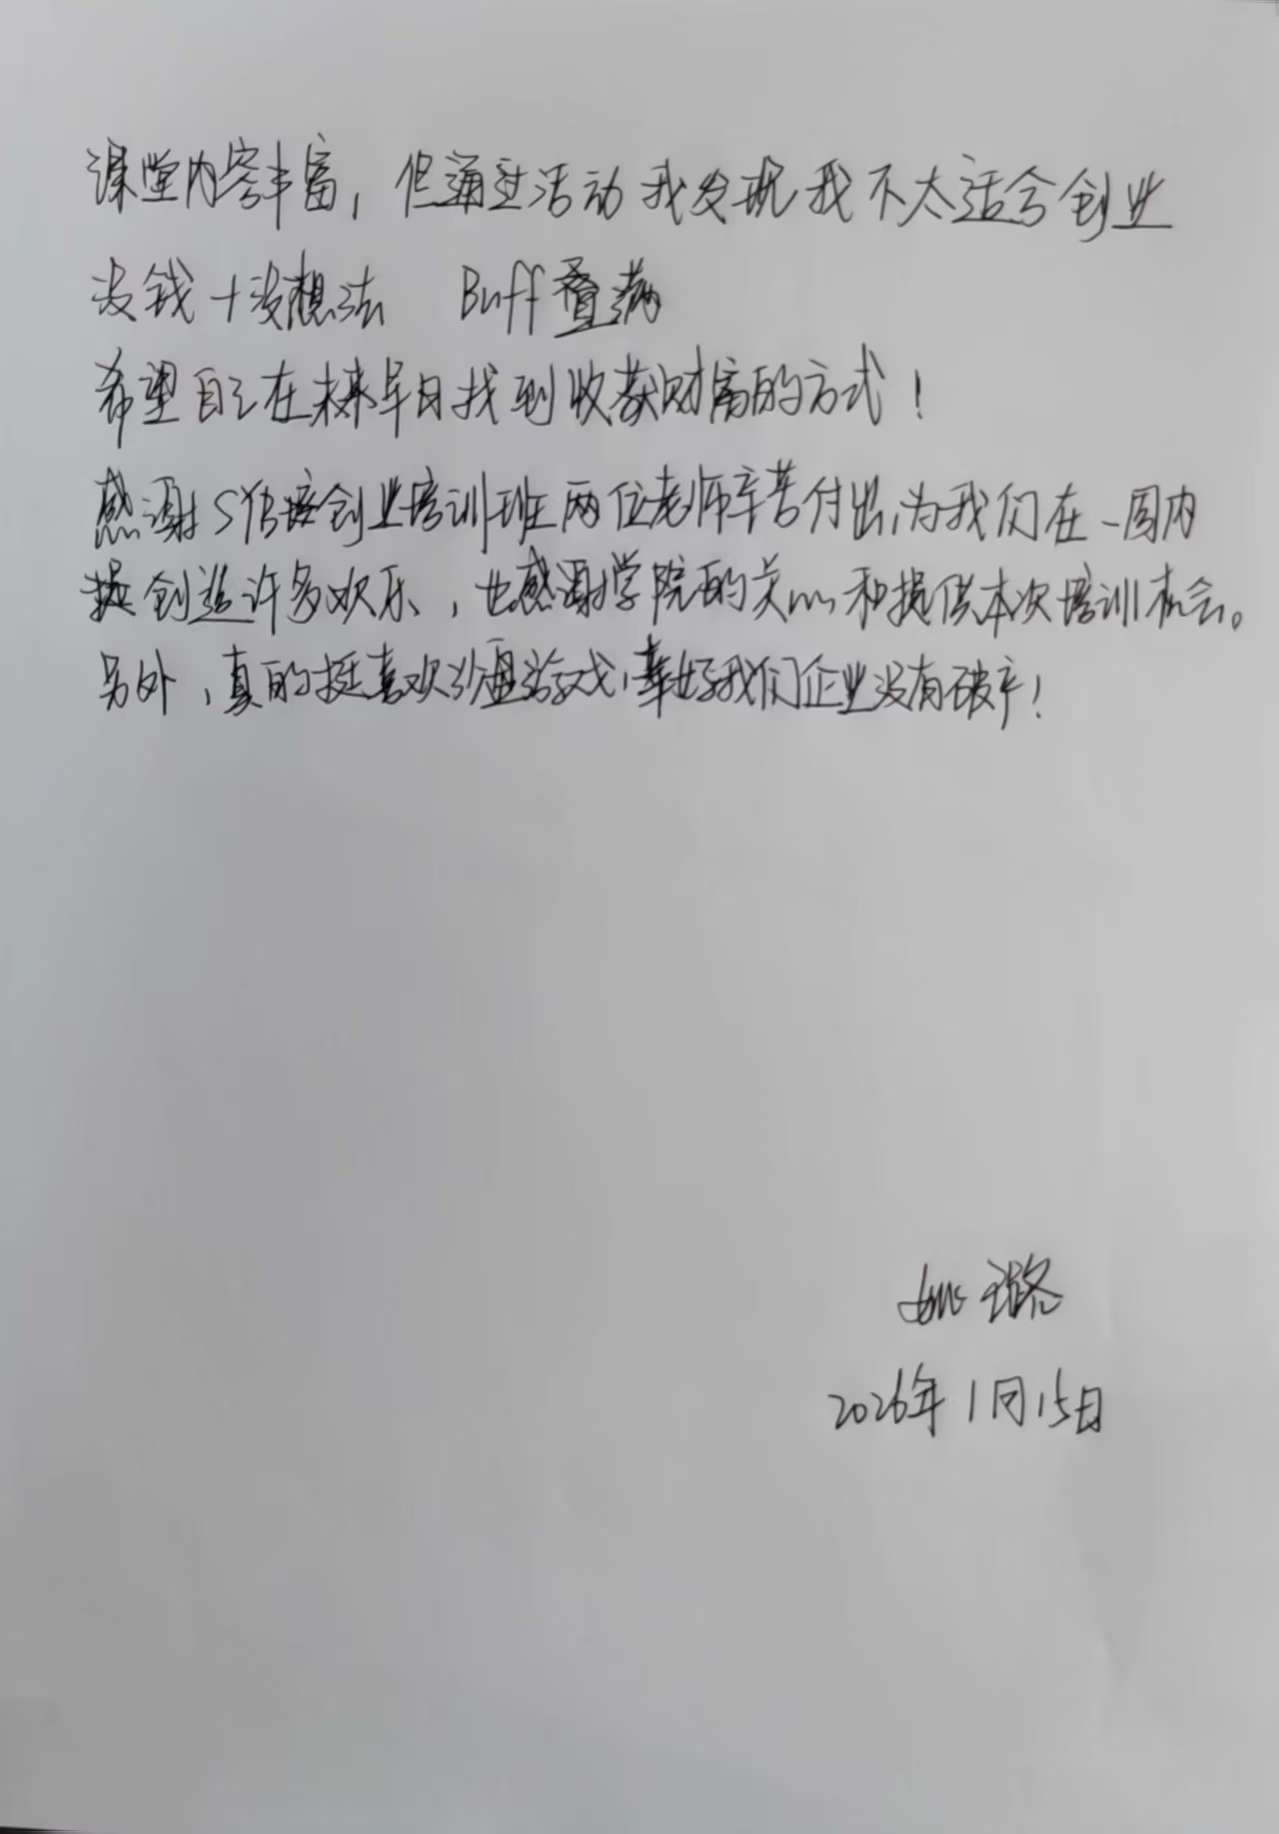 课堂内容丰富，但通过活动我发现我不太适合创业
没钱+没想法 Buff叠满
希望自己在未来早日找到收获财富的方式！
感谢S创业培训班两位老师辛苦付出，为我们在一周内
创造许多欢乐，也感谢学院的关心和提供本次培训机会。
另外，真的挺喜欢沙盘游戏，幸好我们企业没有破产！
璐
2026年1月15日